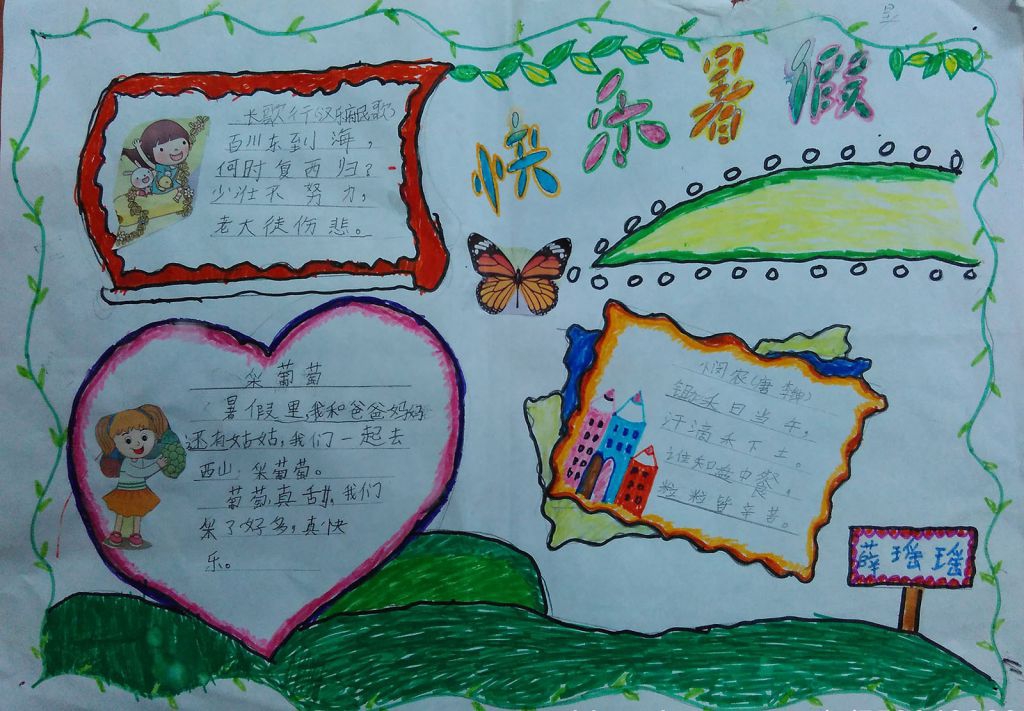 快乐暑假
长歌行(汉乐府民歌)
百川东到海,
何时复西归?
少壮不努力,
老大徒伤悲。
采葡萄
暑假里,我和爸爸妈妈
还有姑姑,我们一起去
西山·采葡萄。
葡萄真甜,我们
采了好多,真快
乐。
悯农(唐 李绅)
锄禾日当午,
汗滴禾下土。
谁知盘中餐,
粒粒皆辛苦。
薛瑶瑶